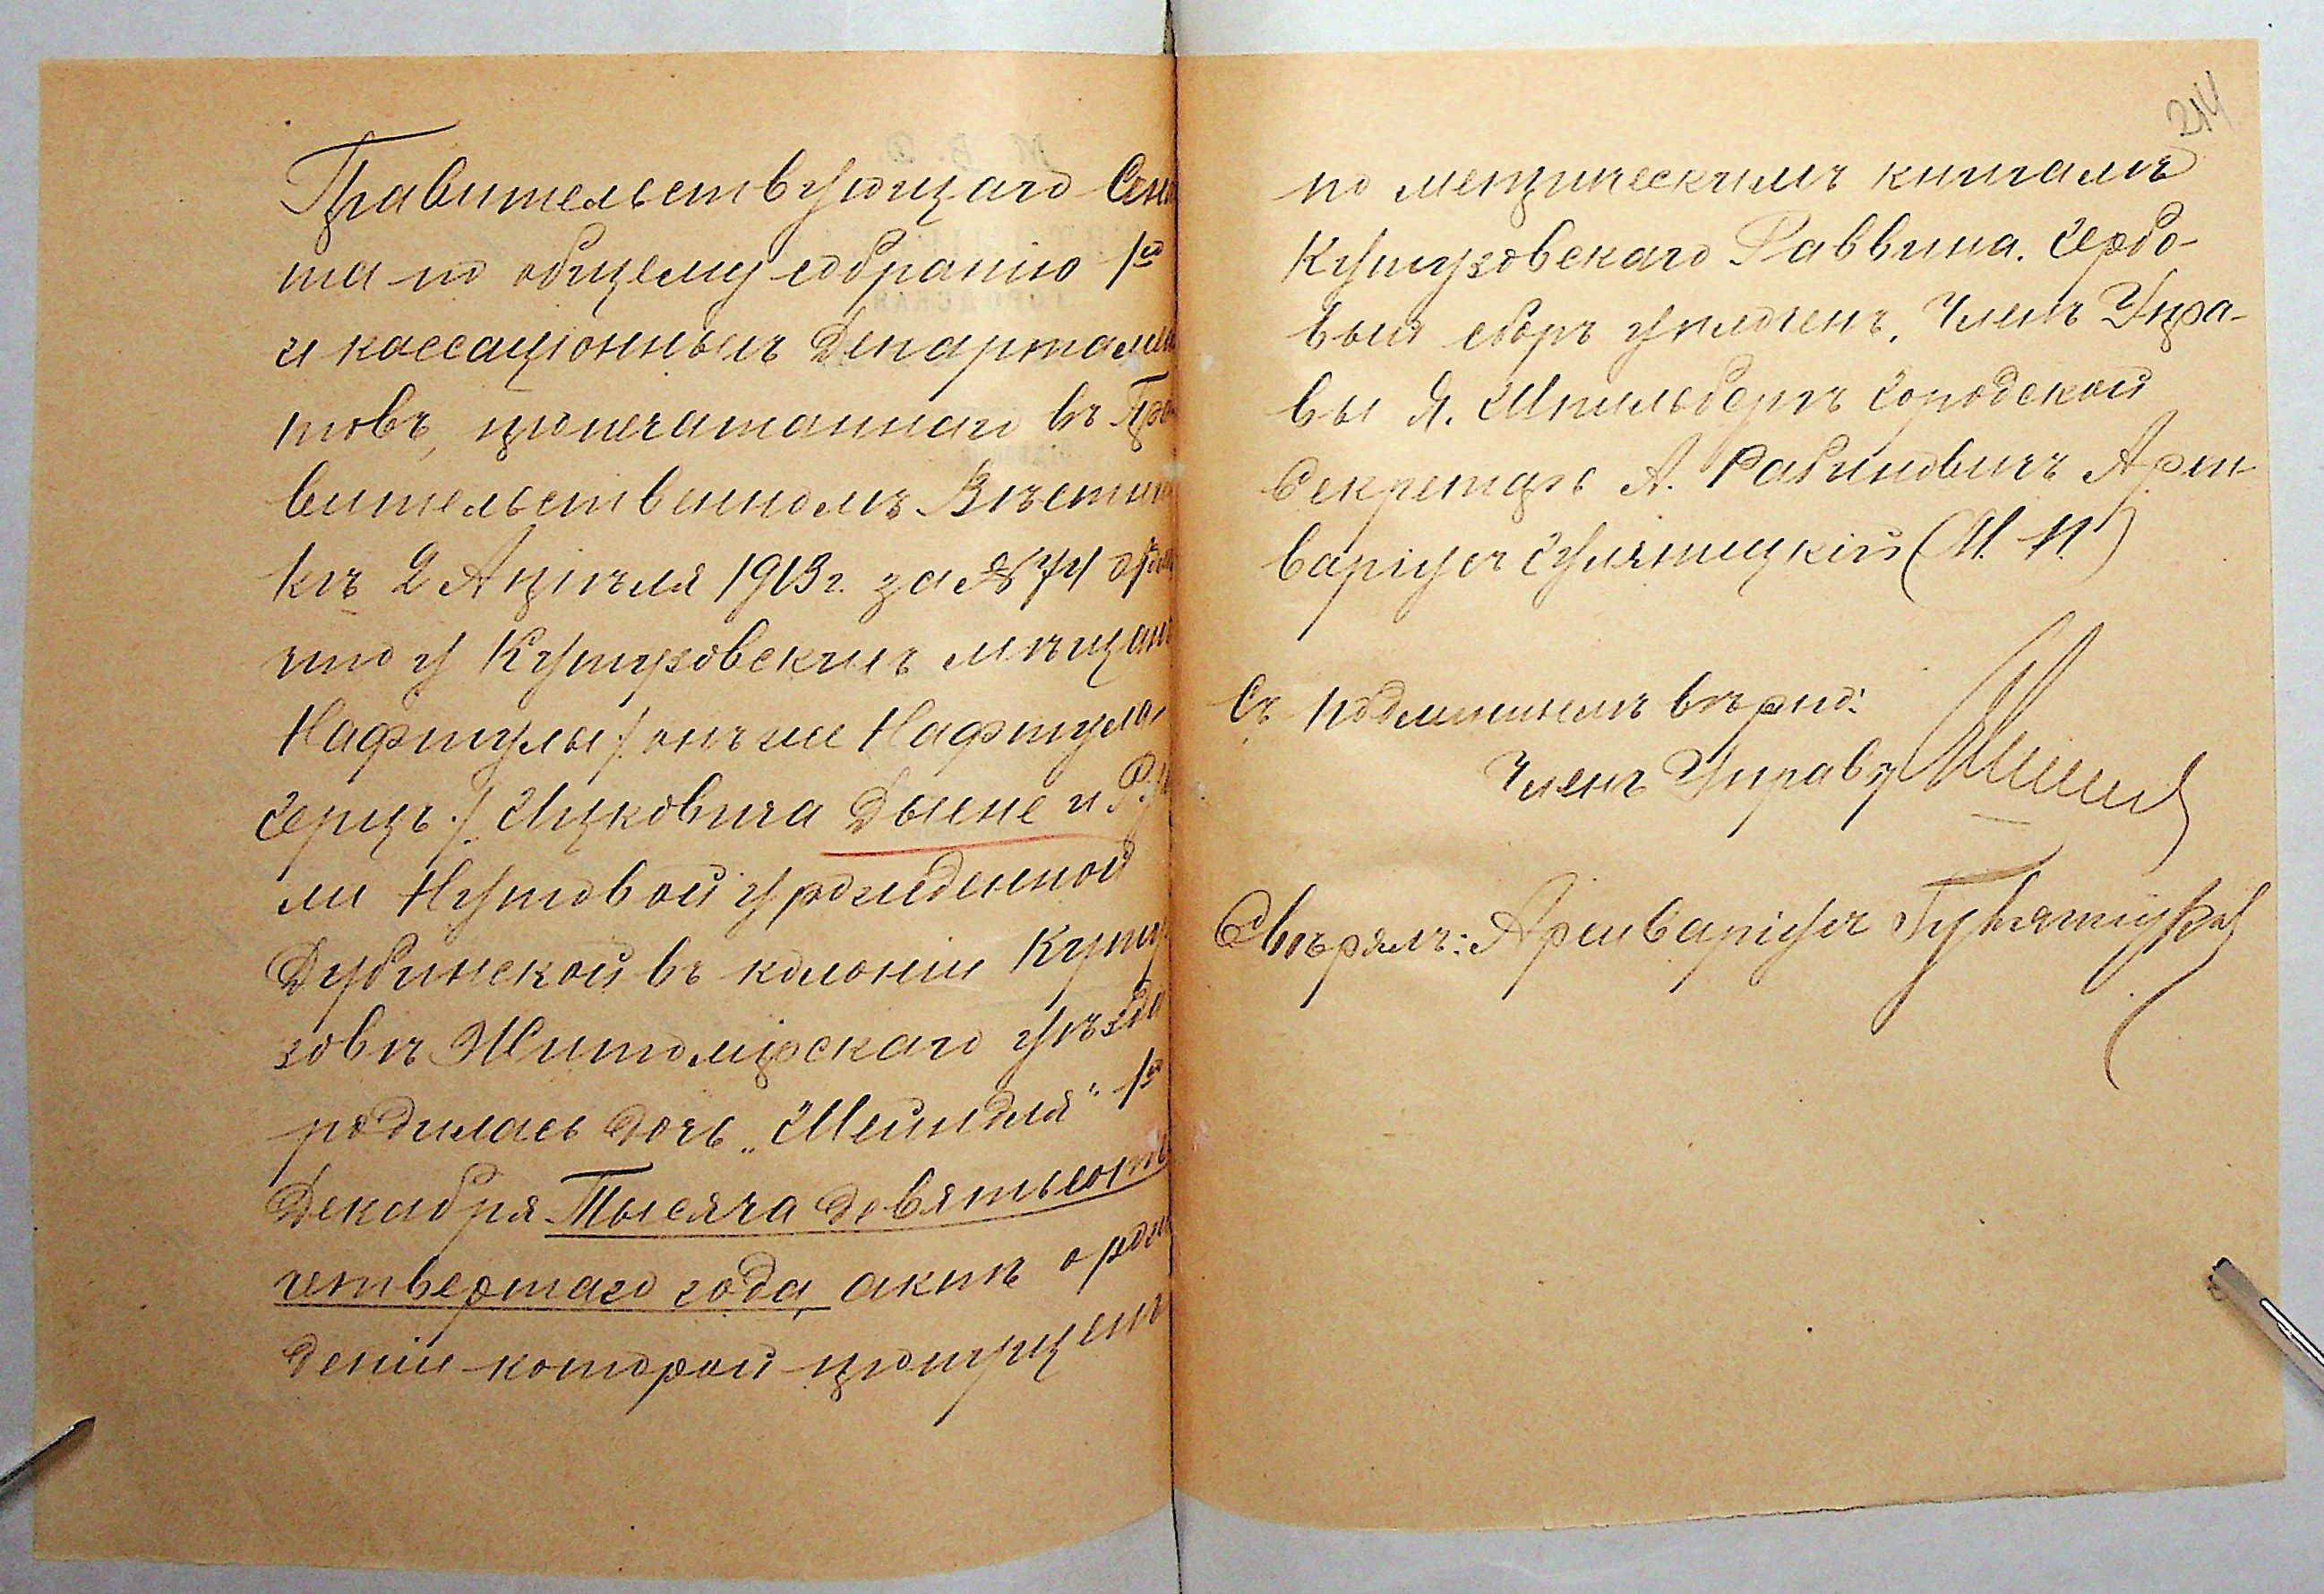 Правительствующаго Сена
та по общему собранію 1го
и кассаціонныхъ Департамен
товъ, пропечатаннаго въ Пра
вительственномъ Вѣстни
кѣ 2 Апрѣля 1913 г. за № 74
что у Кутузовскихъ мѣщанъ
Нафтулы /: онъ же Нафтула,
Герцъ :/ Ицковича Дыене и Ру
ли Нутовой урожденной
Дубинской въ колоніи Куту
зовъ Житомірскаго уѣзда
родилась дочь „Шейндля" 1го
Декабря Тысяча девятьсотъ
четвертаго года, актъ о рож
деніи которой пропущенъ
214
по метрическимъ книгамъ
Кутузовскаго Раввина. Гербо-
вый сборъ уплоченъ. Членъ Упра-
вы Я. Шпильбергъ Городской
Секретарь А. Рабиновичъ Архи-
варіусъ Гулятицкій (М. П.)
Съ подлиннымъ вѣрно:
Членъ Управы
Свѣрялъ: Архиваріусъ Гулятицкій